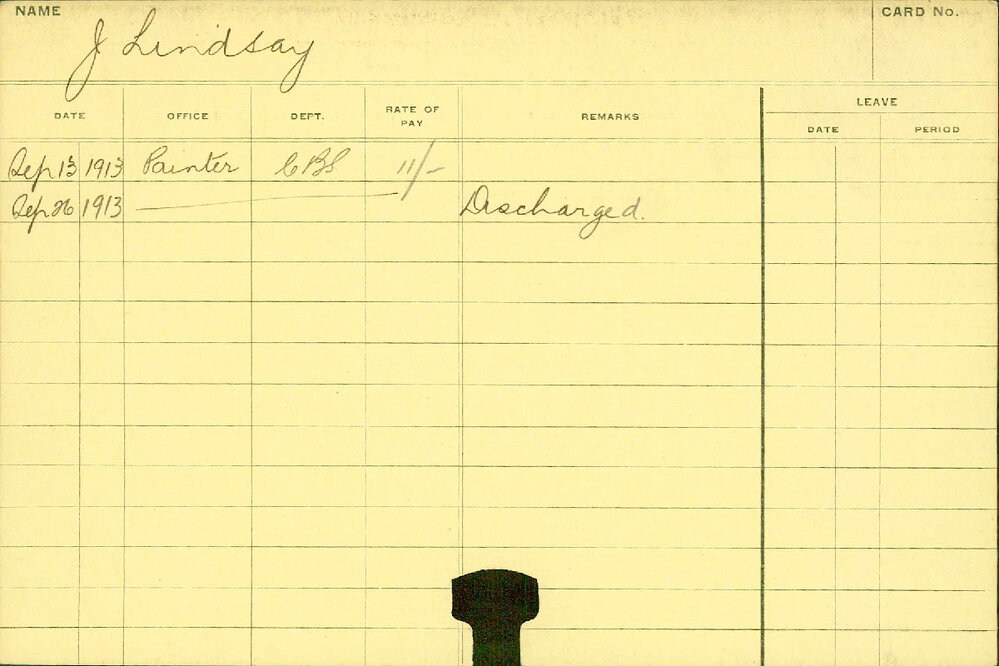 NAME
CARD No.
J Lindsay
DATE OFFICE DEPT. RATE OF PAY REMARKS LEAVE
DATE PERIOD
Sep 13 1913 Painter 11/-
Sep 26 1913 Discharged.